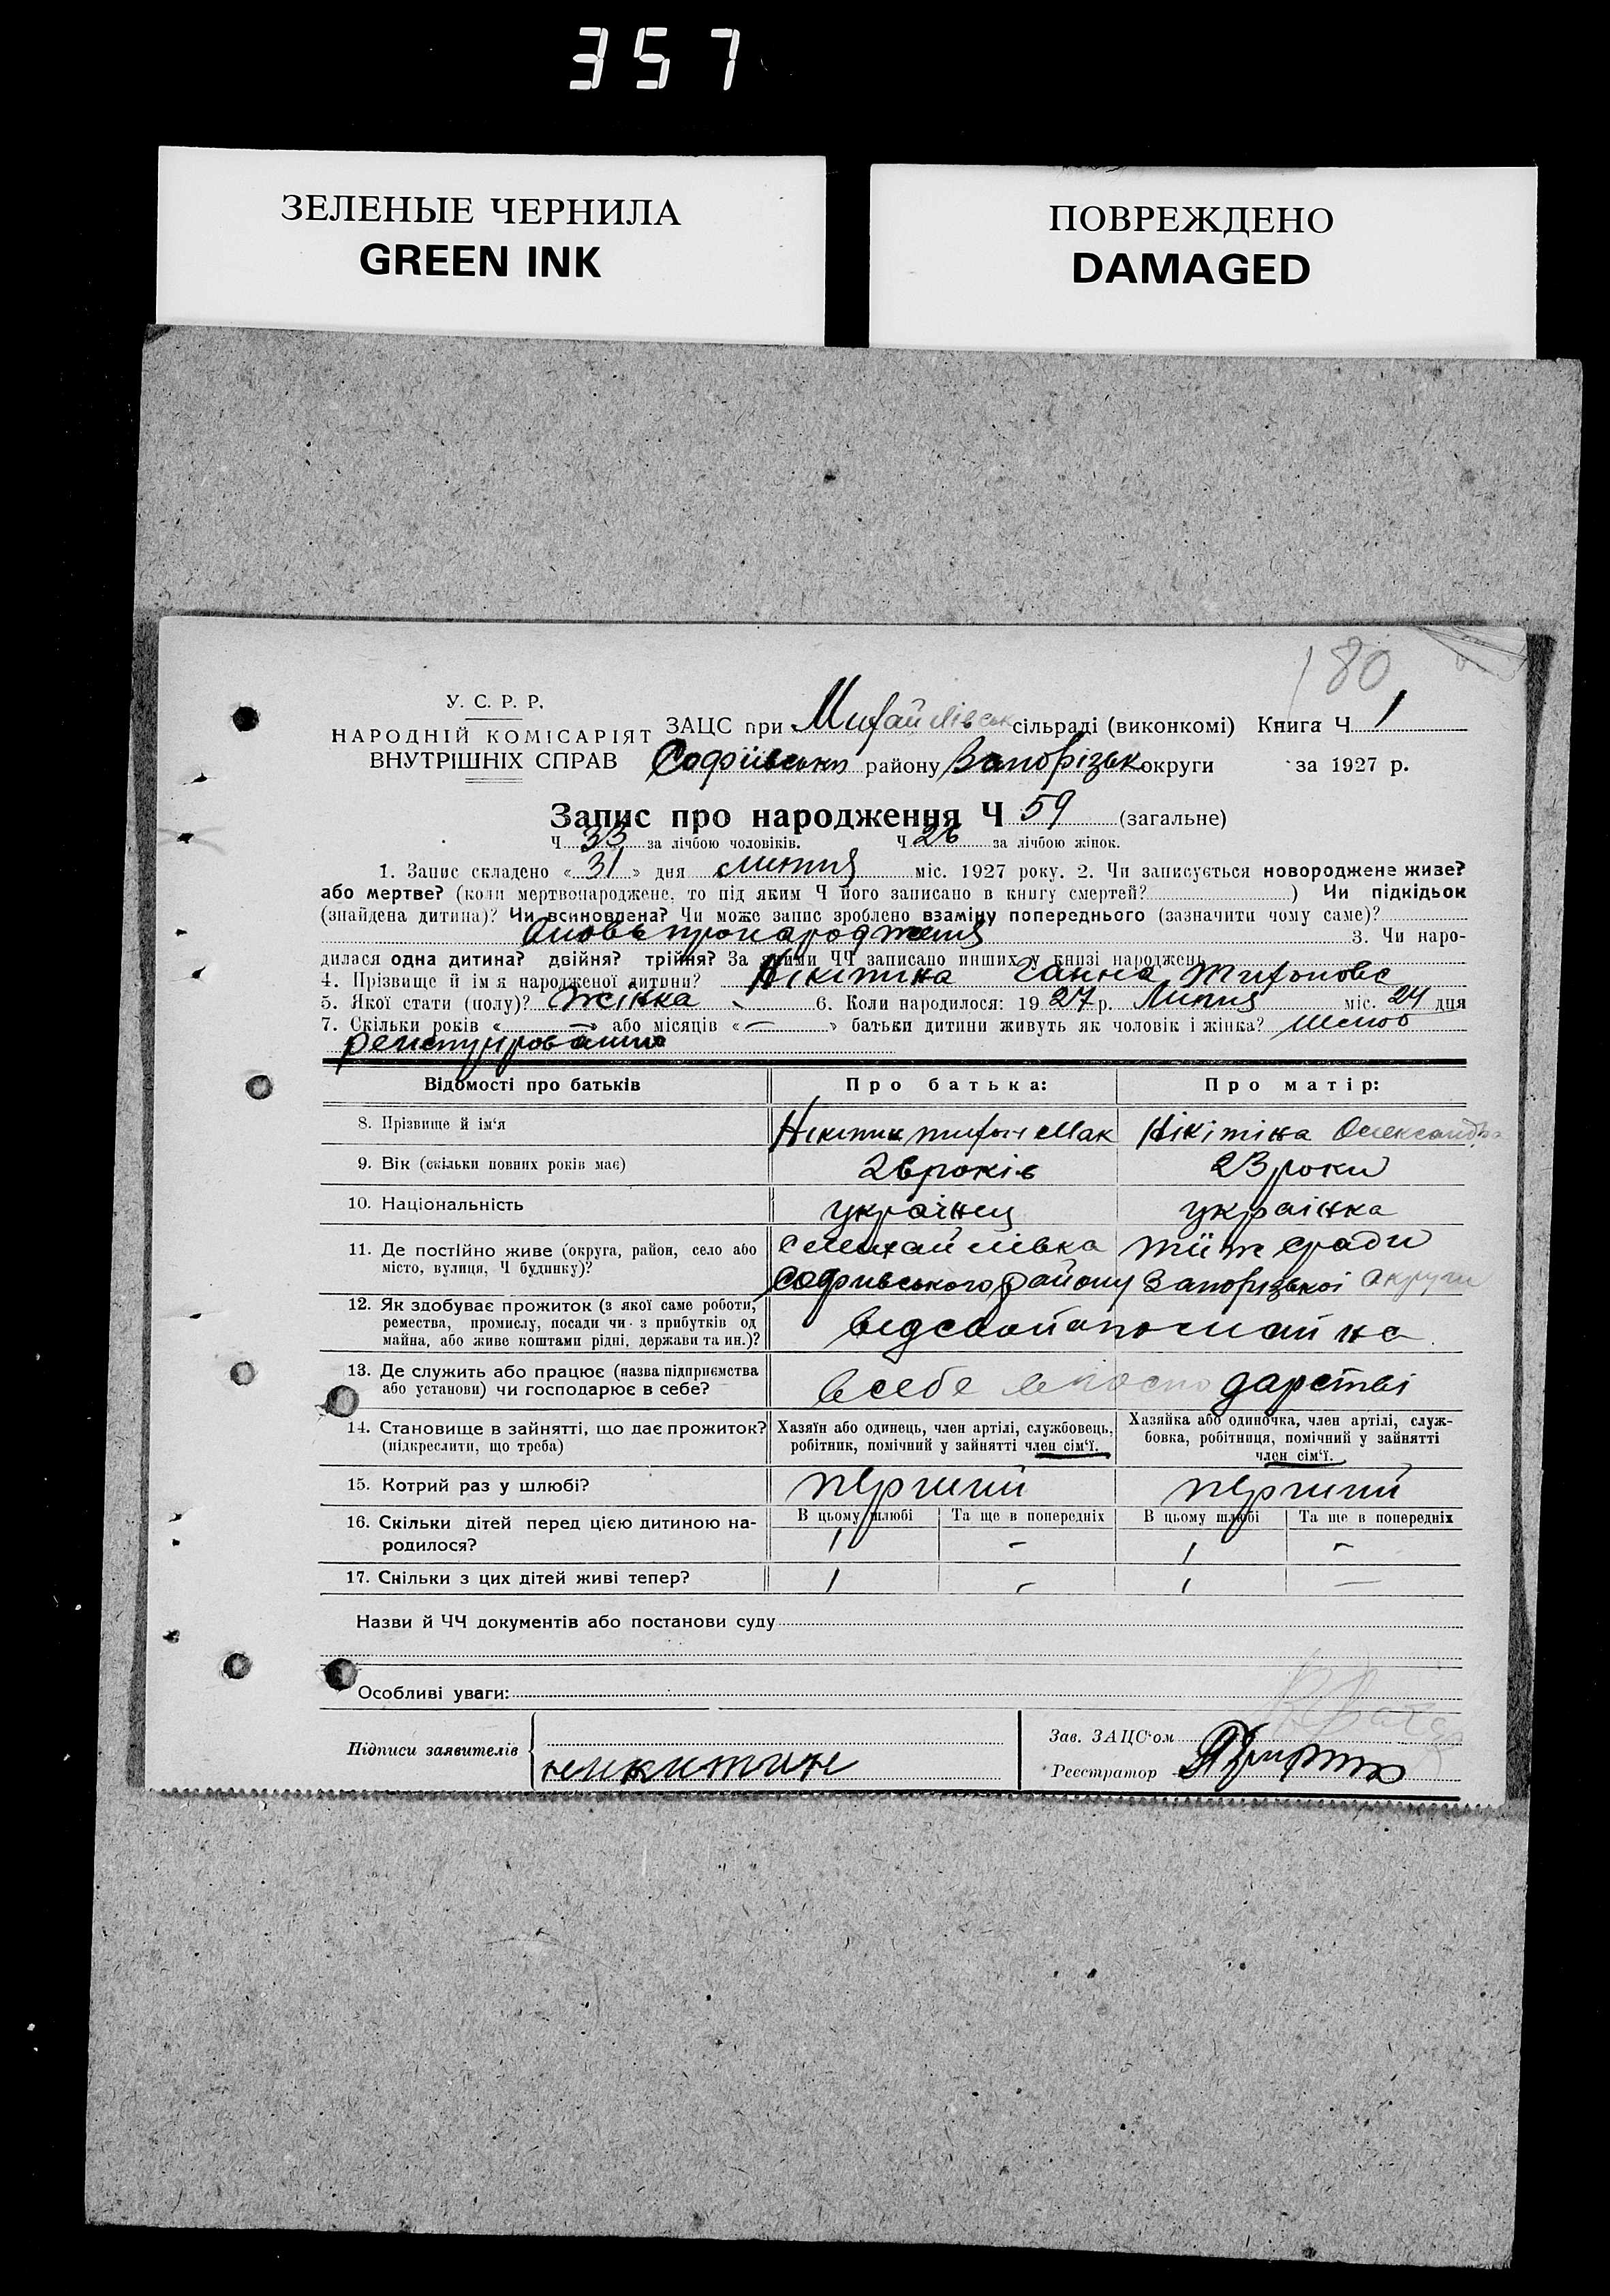 357
ЗЕЛЕНЫЕ ЧЕРНИЛА
GREEN INK
ПОВРЕЖДЕНО
DAMAGED
180
У. С. Р. Р.
НАРОДНІЙ КОМІСАРІЯТ
ВНУТРІШНІХ СПРАВ
ЗАЦС при Михайлівськ сільраді (виконкомі) Книга Ч 1
Софіївськ району Запорізьк округи за 1927 р.
Запис про народження Ч 59 (загальне)
Ч 33 за лічбою чоловіків. Ч 26 за лічбою жінок.
1. Запис складено « 31 » дня липня міс. 1927 року. 2. Чи записується новороджене живе?
або мертве? (коли мертвонароджене, то під яким Ч його записано в книгу смертей? ) Чи підкідьок
(знайдена дитина)? Чи всиновлена? Чи може запис зроблено взаміну попереднього (зазначити чому саме)?
про народження 3. Чи наро-
дилася одна дитина? двійня? трійня? За якими ЧЧ записано инших у книзі народжень
4. Прізвище й ім'я народженої дитини? Нікітина Ганна Тихонова
5. Якої стати (полу)? Жінка 6. Коли народилося: 1927 р. Липня міс. 24 дня
7. Скільки років « — » або місяців « — » батьки дитини живуть як чоловік і жінка? Шлюб
Відомості про батьків
Про батька:
Про матір:
8. Прізвище й ім'я
Нікітин Тихон Мак
Нікітіна Олександра
9. Вік (скільки повних років має)
26 років
23 роки
10. Національність
українец
українка
11. Де постійно живе (округа, район, село або
місто, вулиця, Ч будинку)?
с Михайлівка тіїж сради
Софиївського району Запорізької округи
12. Як здобуває прожиток (з якої саме роботи,
ремества, промислу, посади чи з прибутків од
майна, або живе коштами рідні, держави та ин.)?
13. Де служить або працює (назва підприємства
або установи) чи господарює в себе?
в себе в господарстві
14. Становище в зайнятті, що дає прожиток?
(підкреслити, що треба)
Хазяїн або одинець, член артілі, службовець,
робітник, помічний у зайнятті член сім'ї.
Хазяйка або одиночка, член артілі, служ-
бовка, робітниця, помічний у зайнятті
член сім'ї.
15. Котрий раз у шлюбі?
перший
перший
16. Скільки дітей перед цією дитиною на-
родилося?
В цьому шлюбі Та ще в попередніх В цьому шлюбі Та ще в попередніх
1 - 1 -
17. Скільки з цих дітей живі тепер?
1 - 1 —
Назви й ЧЧ документів або постанови суду
Особливі уваги:
Підписи заявителів
никитин
Зав. ЗАЦС'ом
Реєстратор